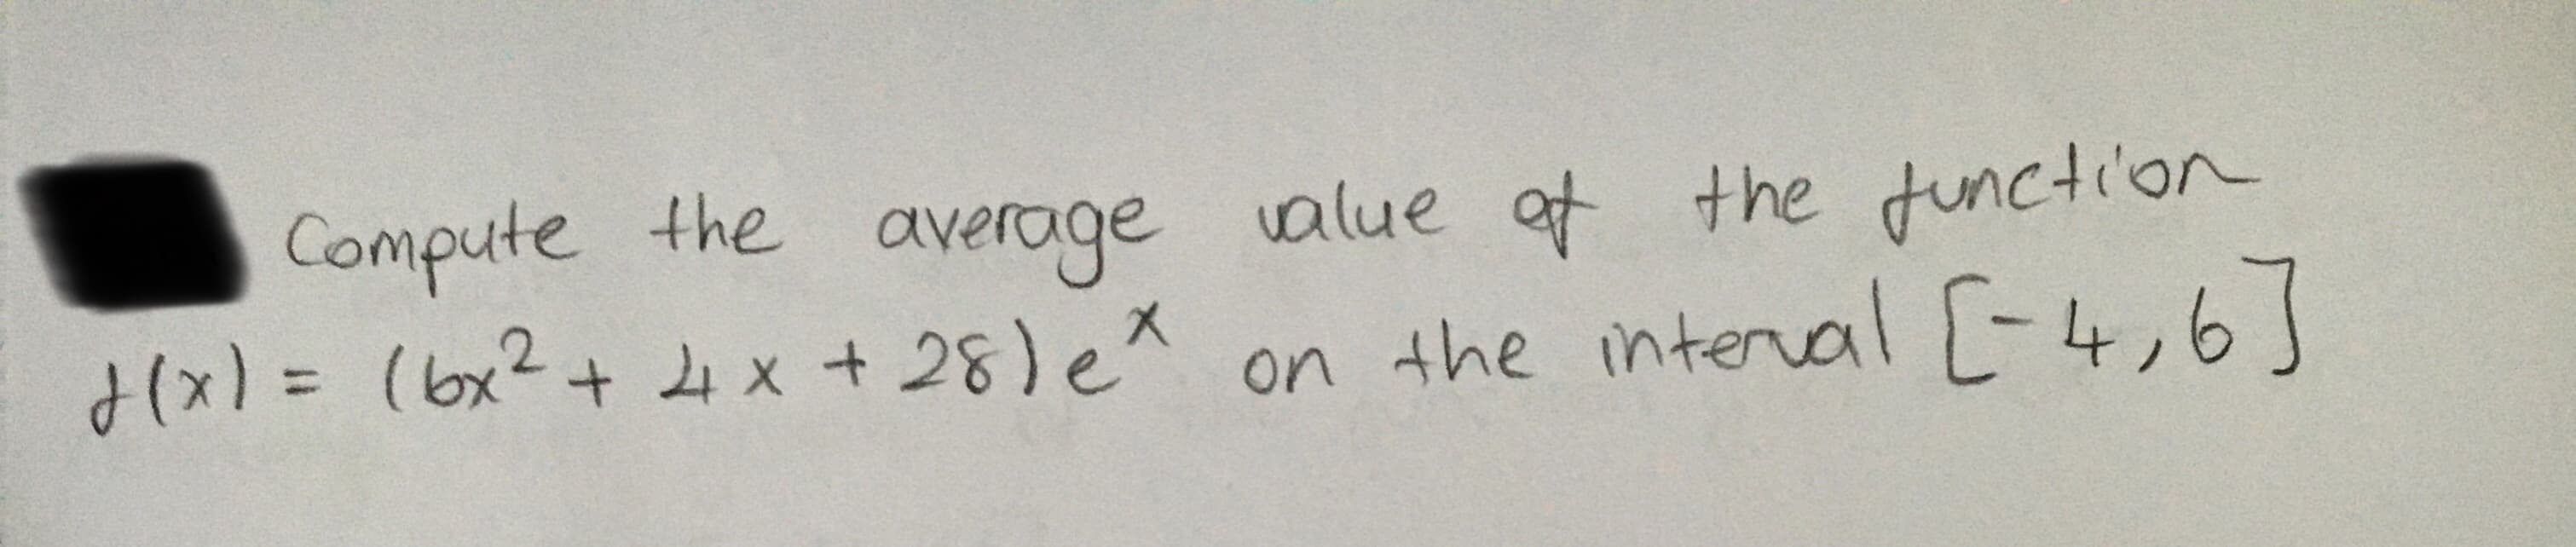 Compute the average value of the function
f(x) = (6x² + 4x + 28)eˣ on the interval [-4,6]